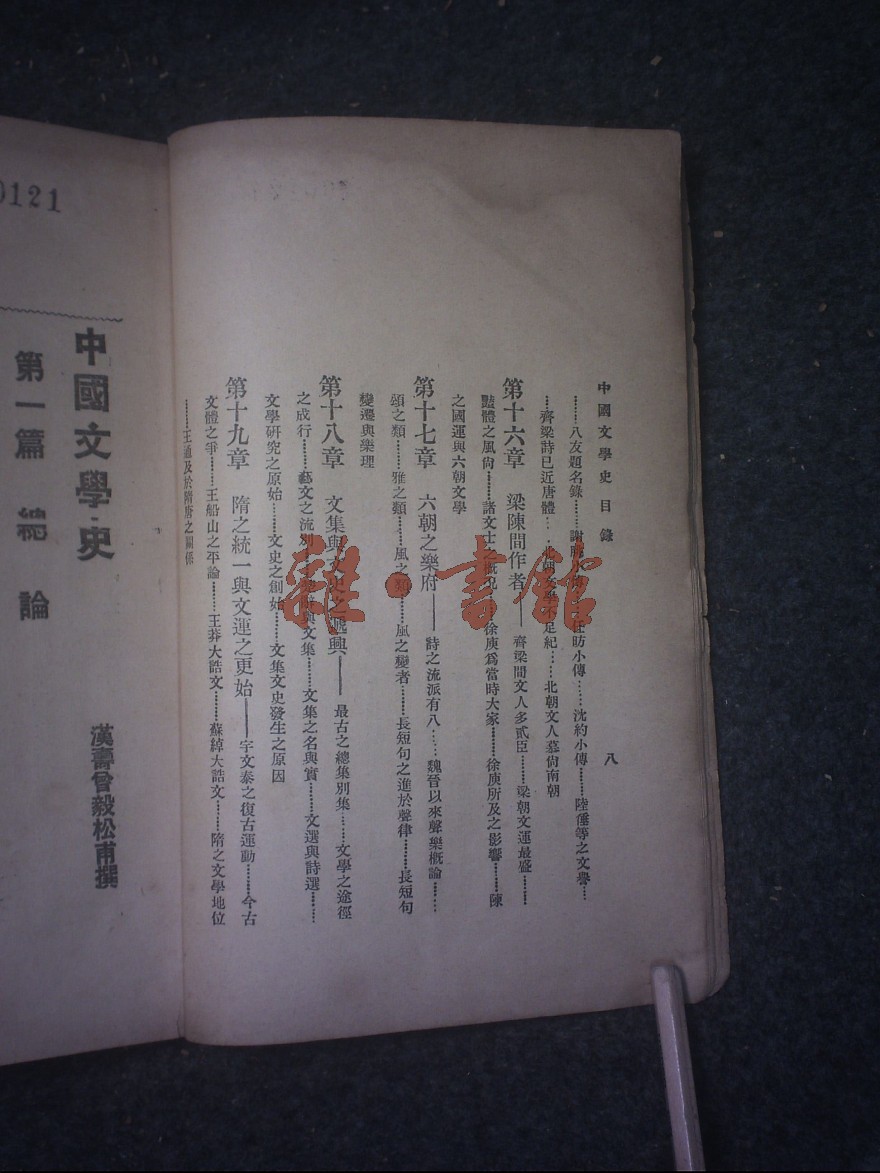 中國文學史目錄
八
……八友題名錄……謝朓小傳……任昉小傳……沈約小傳……陸倕等之文譽…
…齊梁詩已近唐體…北朝文學不足紀……北朝文人慕尙南朝
第十六章 梁陳間作者——齊梁間文人多貳臣……梁朝文運最盛……
豔體之風尙……諸文士之槪況……徐庾爲當時大家……徐庾所及之影響……陳
之國運與六朝文學
第十七章 六朝之樂府——詩之流派有八……魏晉以來聲樂槪論……
頌之類……雅之類……風之類……風之變者……長短句之進於聲律……長短句
變遷與樂理
第十八章 文集與文史之遞興——最古之總集別集……文學之途徑
之成行……藝文之流別……與文集……文集之名與實……文選與詩選……
文學硏究之原始……文史之創始……文集文史發生之原因
第十九章 隋之統一與文運之更始——宇文泰之復古運動……今古
文體之爭……王船山之平論……王莽大誥文……蘇綽大誥文……隋之文學地位
……王通及於隋唐之關係
雜·書館
0121
中國文學史
漢壽曾毅松甫撰
第一篇 總論